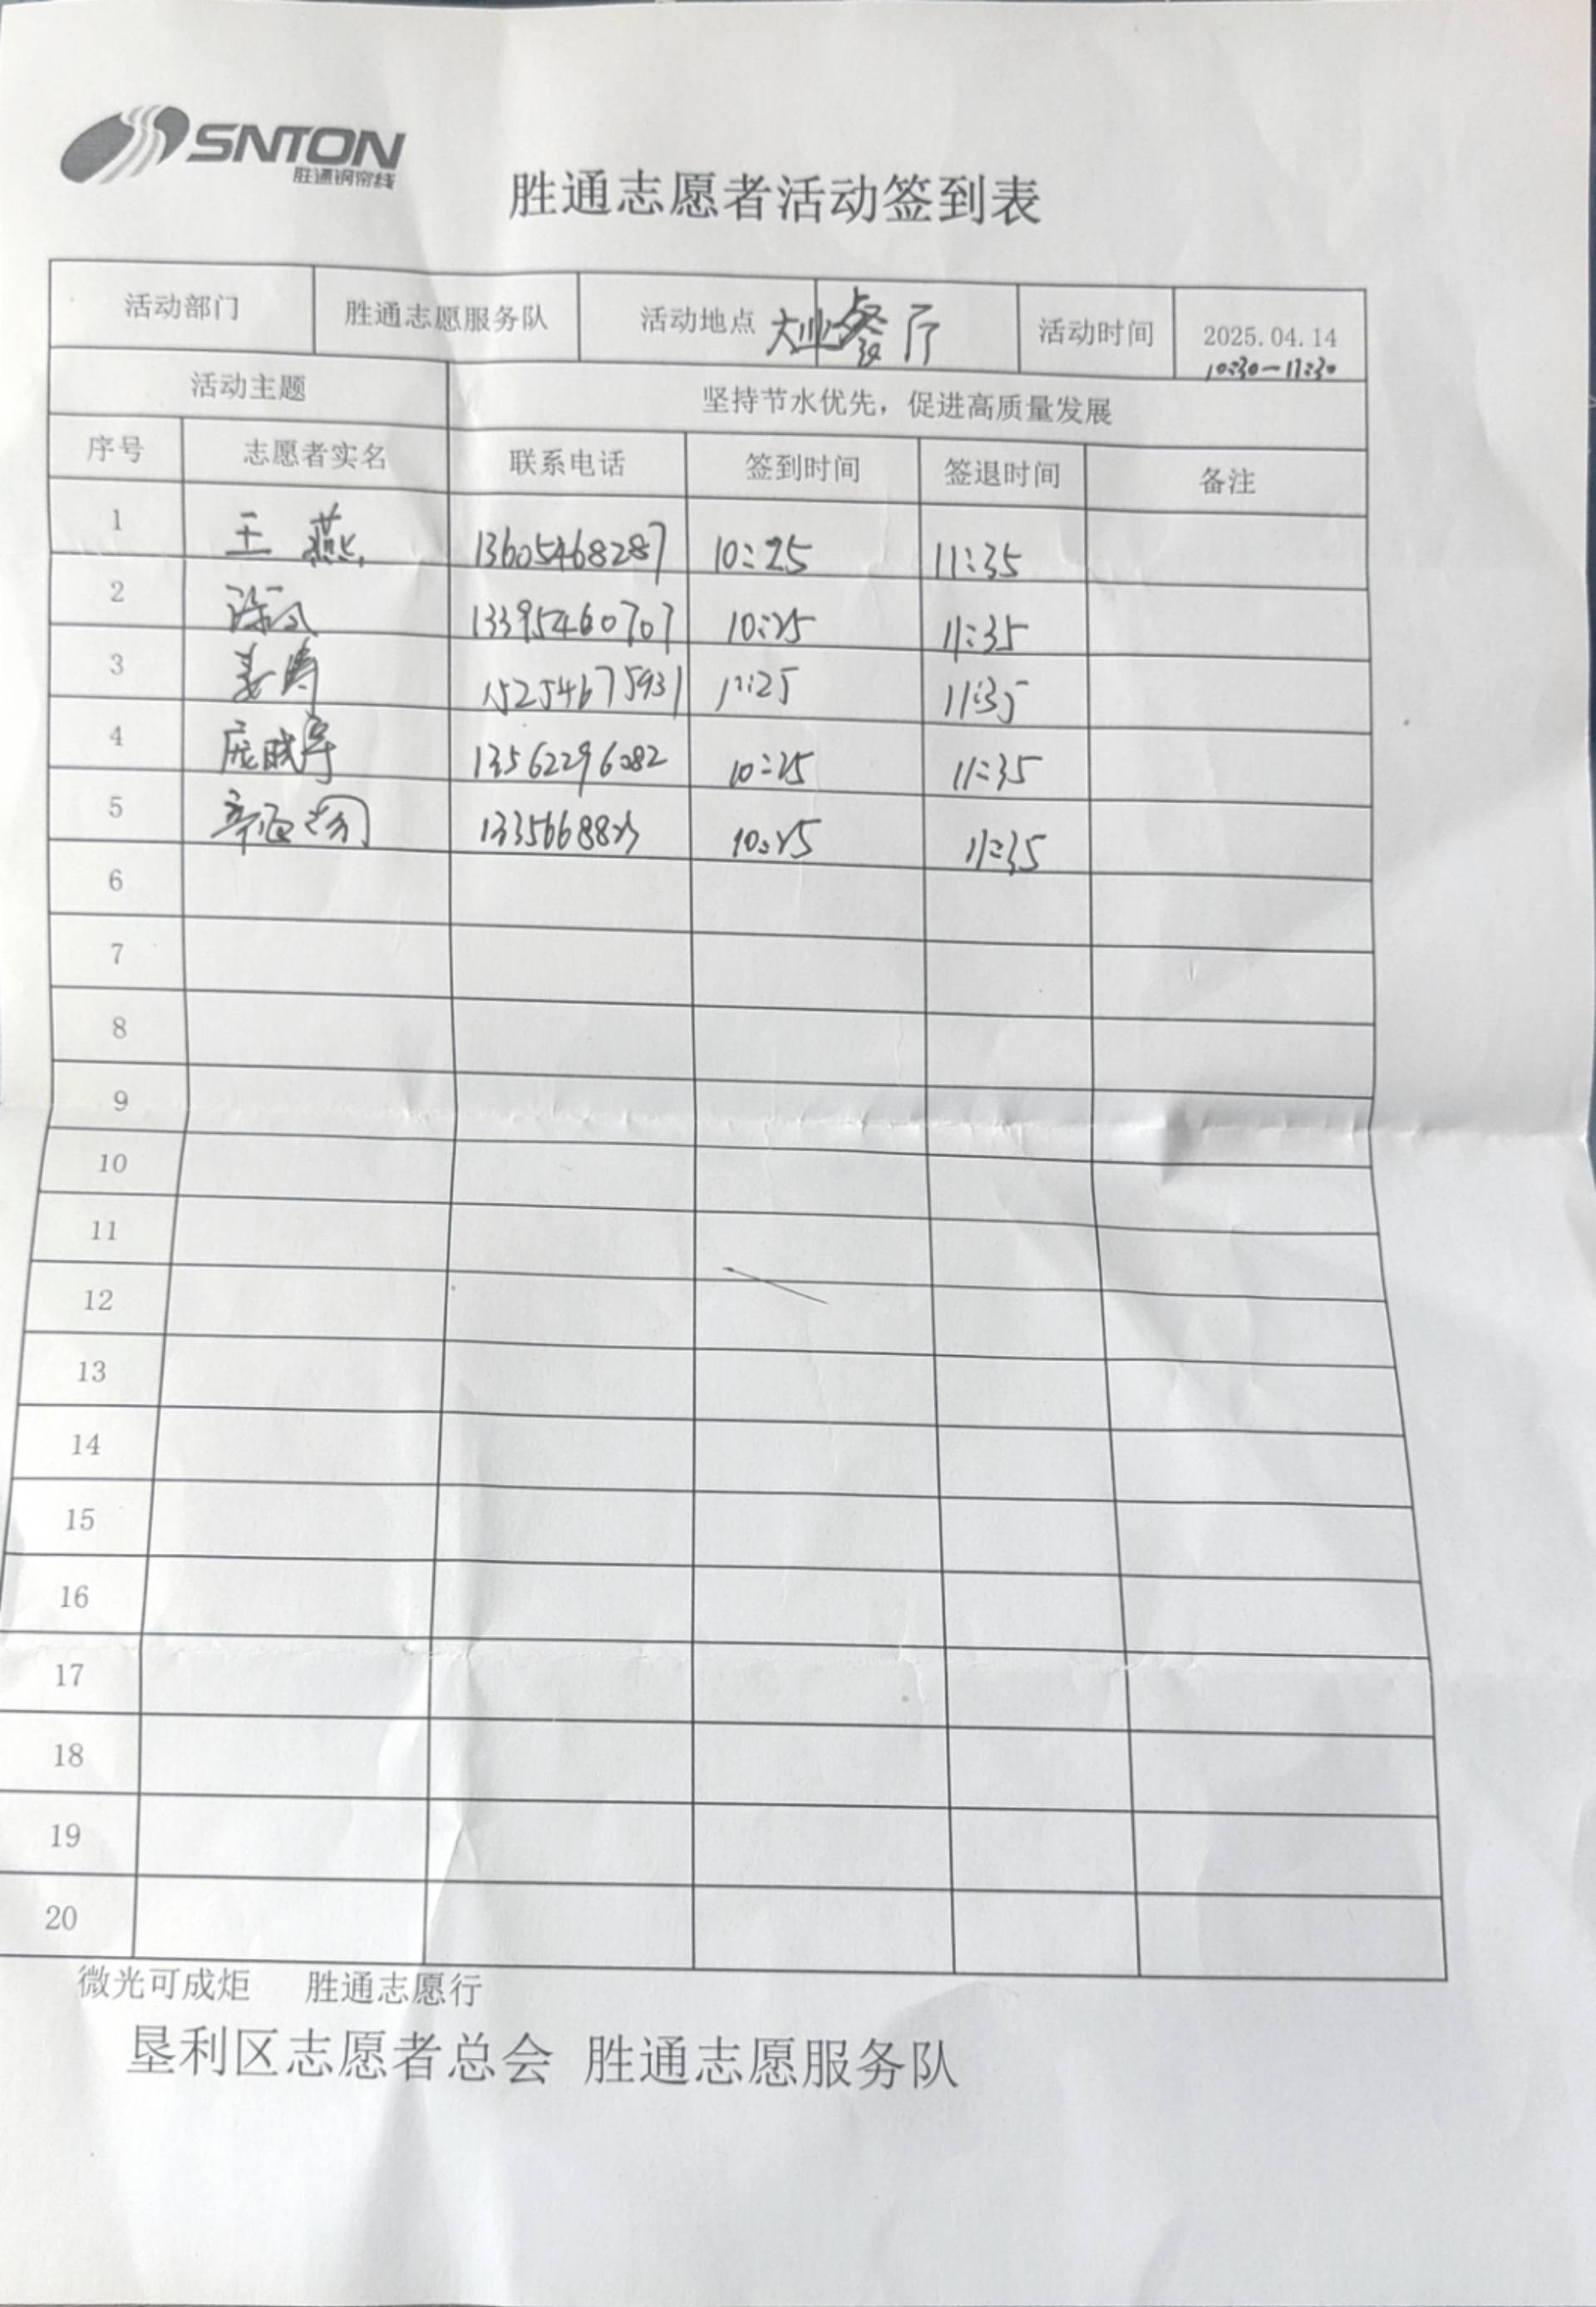 SNTON
胜通钢帘线
胜通志愿者活动签到表
活动部门 胜通志愿服务队 活动地点 大业餐厅 活动时间 2025.04.14
10:30-11:30
活动主题 坚持节水优先，促进高质量发展
序号 志愿者实名 联系电话 签到时间 签退时间 备注
1 王燕 13605468287 10:25 11:35
2 13395460707 10:25 11:35
3 姜涛 15254675931 11:35
4 庞晓宇 13562296082 10:25 11:35
5 10:25 11:35
6
7
8
9
10
11
12
13
14
15
16
17
18
19
20
微光可成炬 胜通志愿行
垦利区志愿者总会 胜通志愿服务队